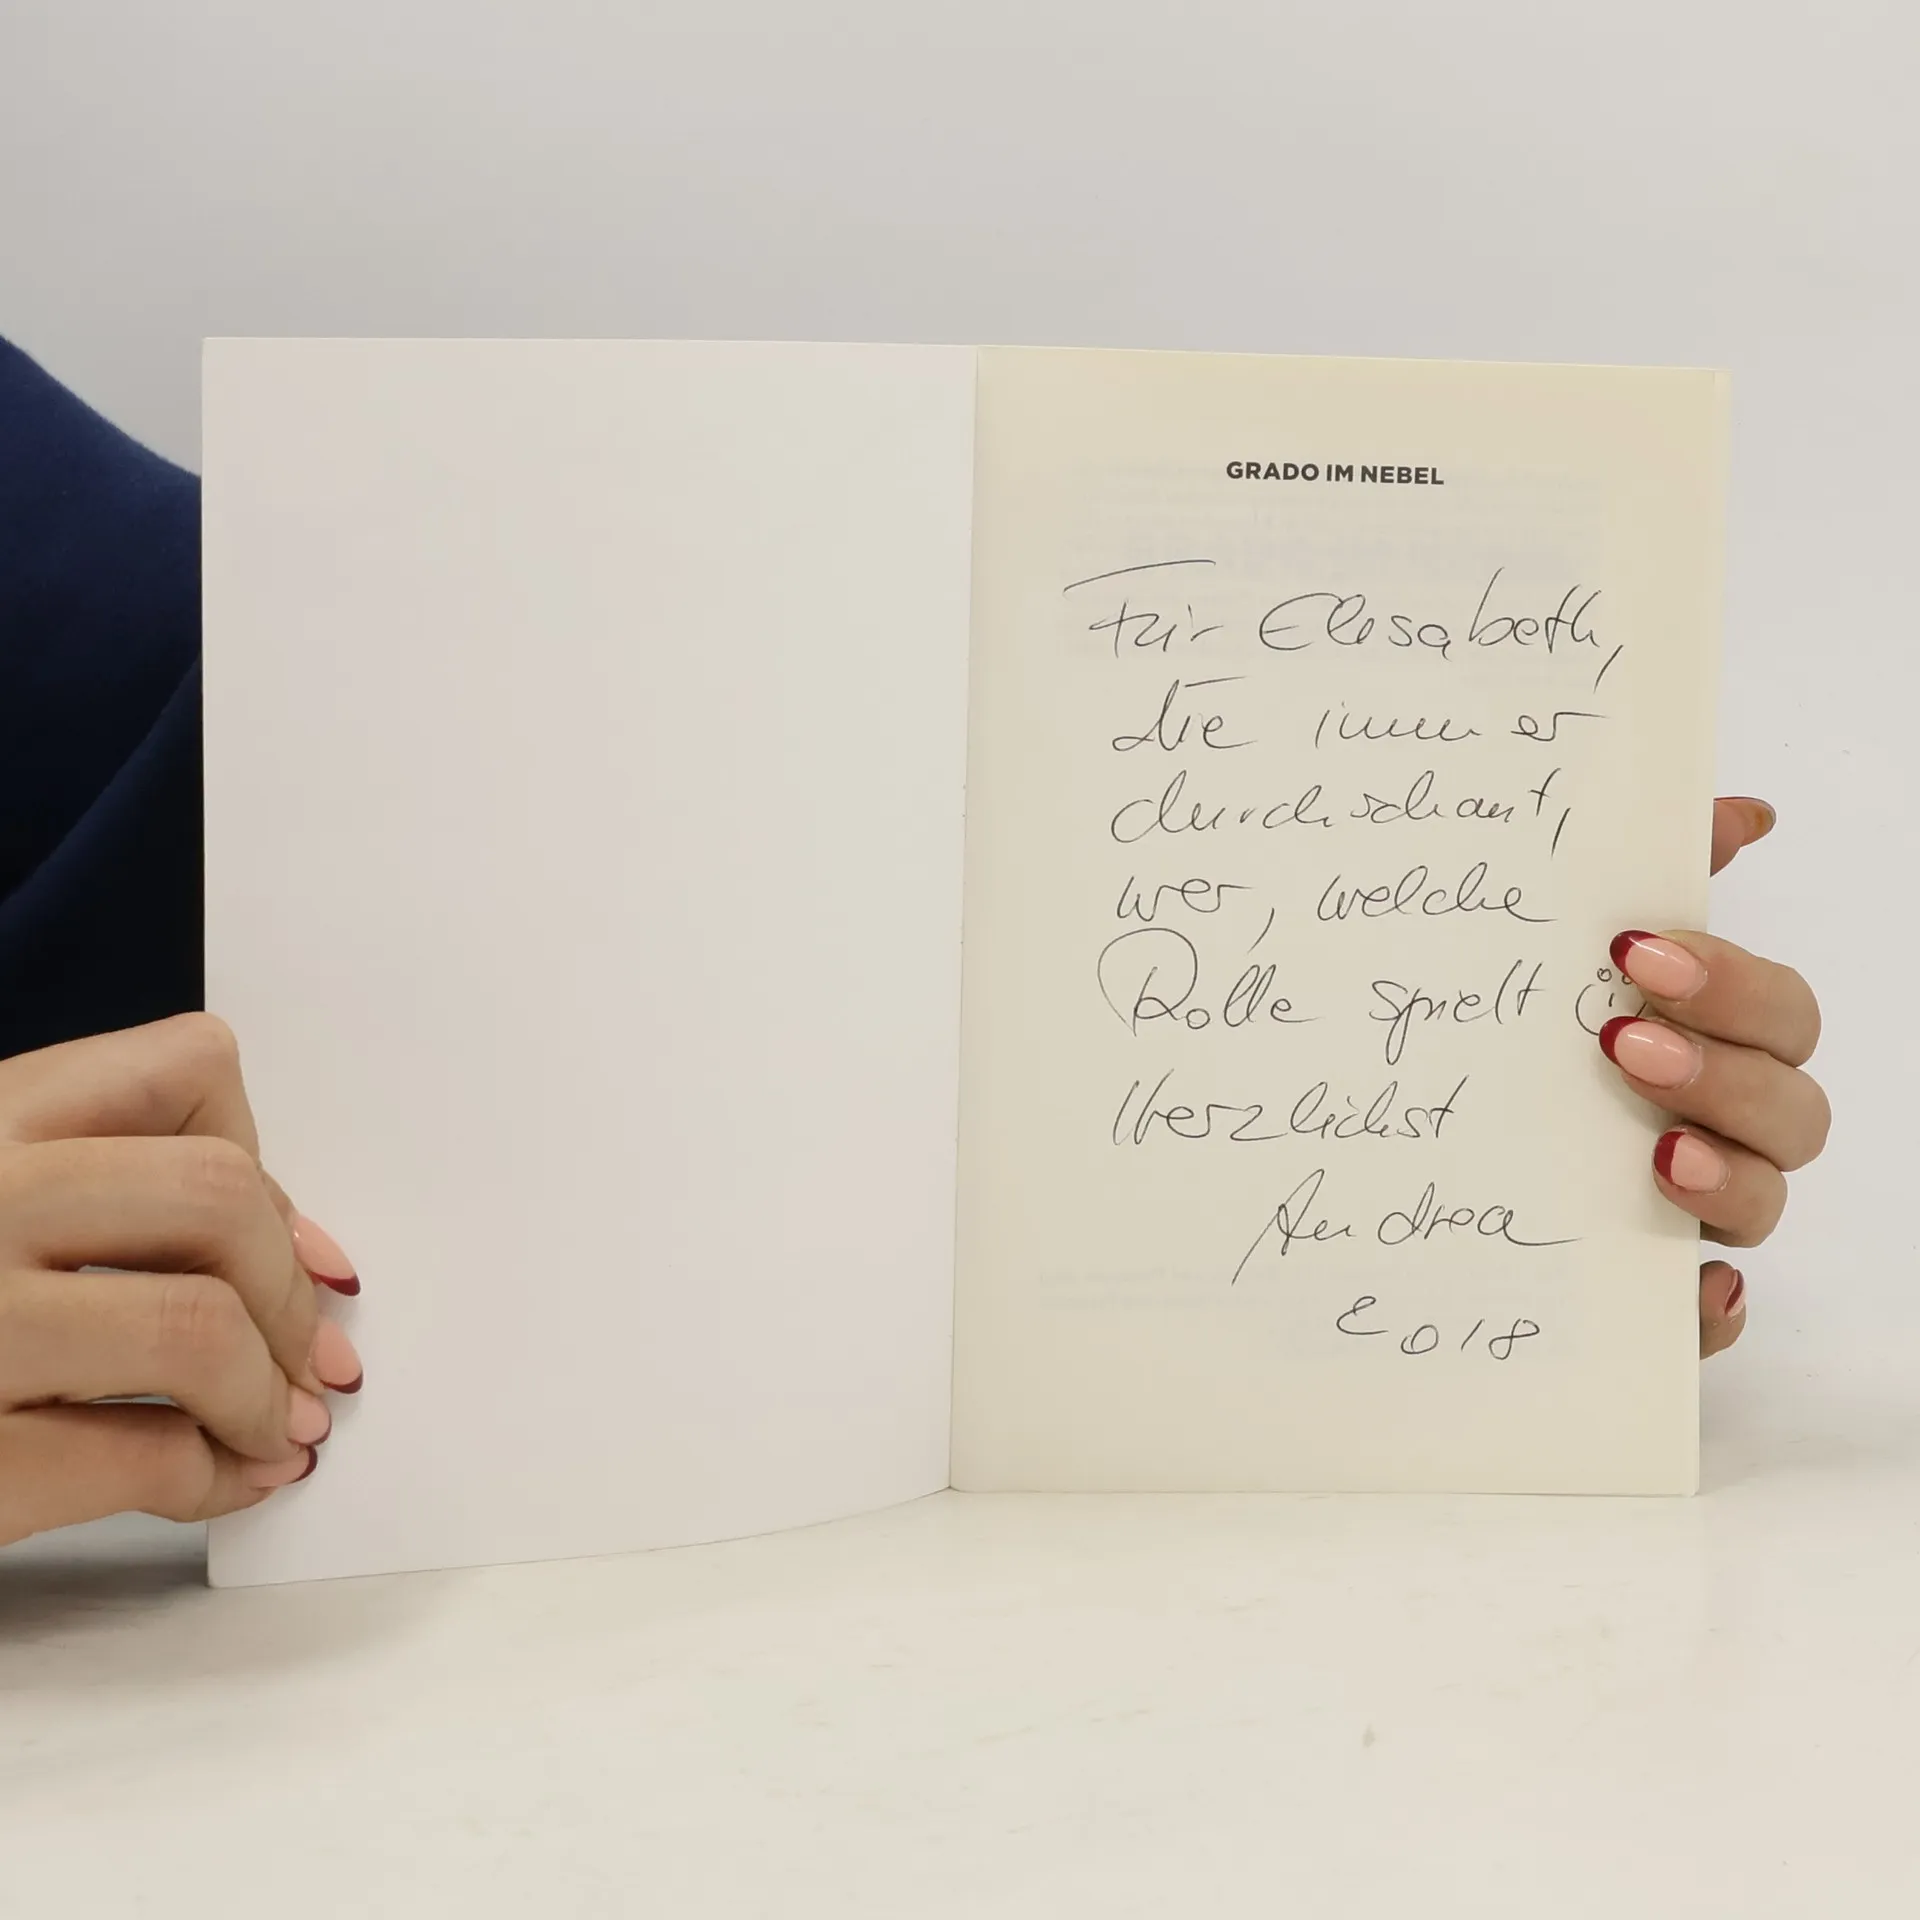 GRADO IM NEBEL
Für Elisabeth,
die immer
durchschaut,
wer, welche
Rolle spielt
Herzlichst
Andrea
2018